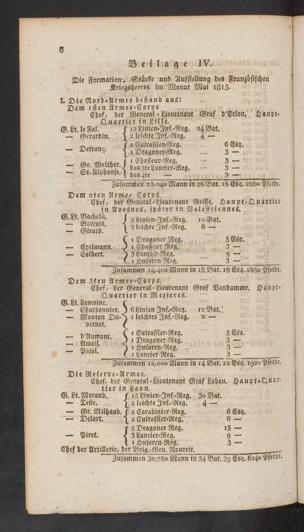 6
Beilage IV.
Die Formation, Stärke und Aufstellung des Französischen
Kriegsheeres im Monat Mai 1815.
I. Die Nord-Armee bestand aus:
Dem 1sten Armee-Corps
Chef, der General-Lieutenant Graf d'Erlon, Haupt-
Quartier in Lille.
G. Lt. le Fal. 12 Linien-Inf.-Reg. 24 Bat.
— Gerardin. 2 leichte Inf. Reg. 4 —
— Defranz. 2 Cuirassier-Reg. 6 Esq.
1 Dragoner-Reg. 3 —
— Gr. Walther. 1 Chasseur-Reg. 3 —
— St. Alphonse. das 3te Lancier-Reg. 3 —
das 4te — 3 —
Zusammen Mann in 28 Bat. 18 Esq. Pferde.
Dem 2ten Armee-Corps.
Chef, der General-Lieutenant Reille, Haupt-Quartier
in Avesnes, später in Valenciennes.
G. Lt. Bachelü. 5 Linien-Inf.-Reg. 10 Bat.
— Barrois. 3 leichte Inf.-Reg. 6 —
— Girard.
1 Dragoner Reg. 3 Esq.
— Excelmann. 1 Chasseur Reg. 3 —
— Colbert. 3 Lancier Reg. 9 —
1 Husaren Reg. 3 —
Zusammen 14,400 Mann in 16 Bat. 18 Esq. 2880 Pferde.
Dem 3ten Armee-Corps.
Chef, der General-Lieutenant Graf Vandamme. Haupt-
Quartier in Mezieres.
G. Lt. Lemoine.
— Charbonnier. 6 Linien Inf.-Reg. 12 Bat.
— Mouton Du- 1 leichtes Inf.-Reg. 2 —
vernet.
1 Cuirassier-Reg. 3 Esq.
— d'Aumont. 1 Dragoner-Reg. 3 —
— Avreil. 1 Husaren-Reg. 3 —
— Pajol. 1 Lancier Reg. 3 —
Zusammen 12,000 Mann in 14 Bat. 12 Esq. 1920 Pferde.
Die Reserve-Armee.
Chef, der General-Lieutenant Graf Lobau. Haupt-Quar-
tier in Laon.
G. Lt. Morand. 15 Linien-Inf.-Reg. 30 Bat.
— Teste. 2 leichte Inf.-Reg. 4 —
— Gr. Milhaud. 2 Carabinier-Reg. 6 Esq.
— Delort. 2 Cuirassier-Reg. 6 —
5 Dragoner Reg. 15 —
— Piret. 3 Lancier-Reg. 9 —
1 Husaren-Reg. 3 —
Chef der Artillerie, der Brig.-Gen. Nourrit.
Zusammen 30,780 Mann in 34 Bat. 39 Esq. 6240 Pferde.